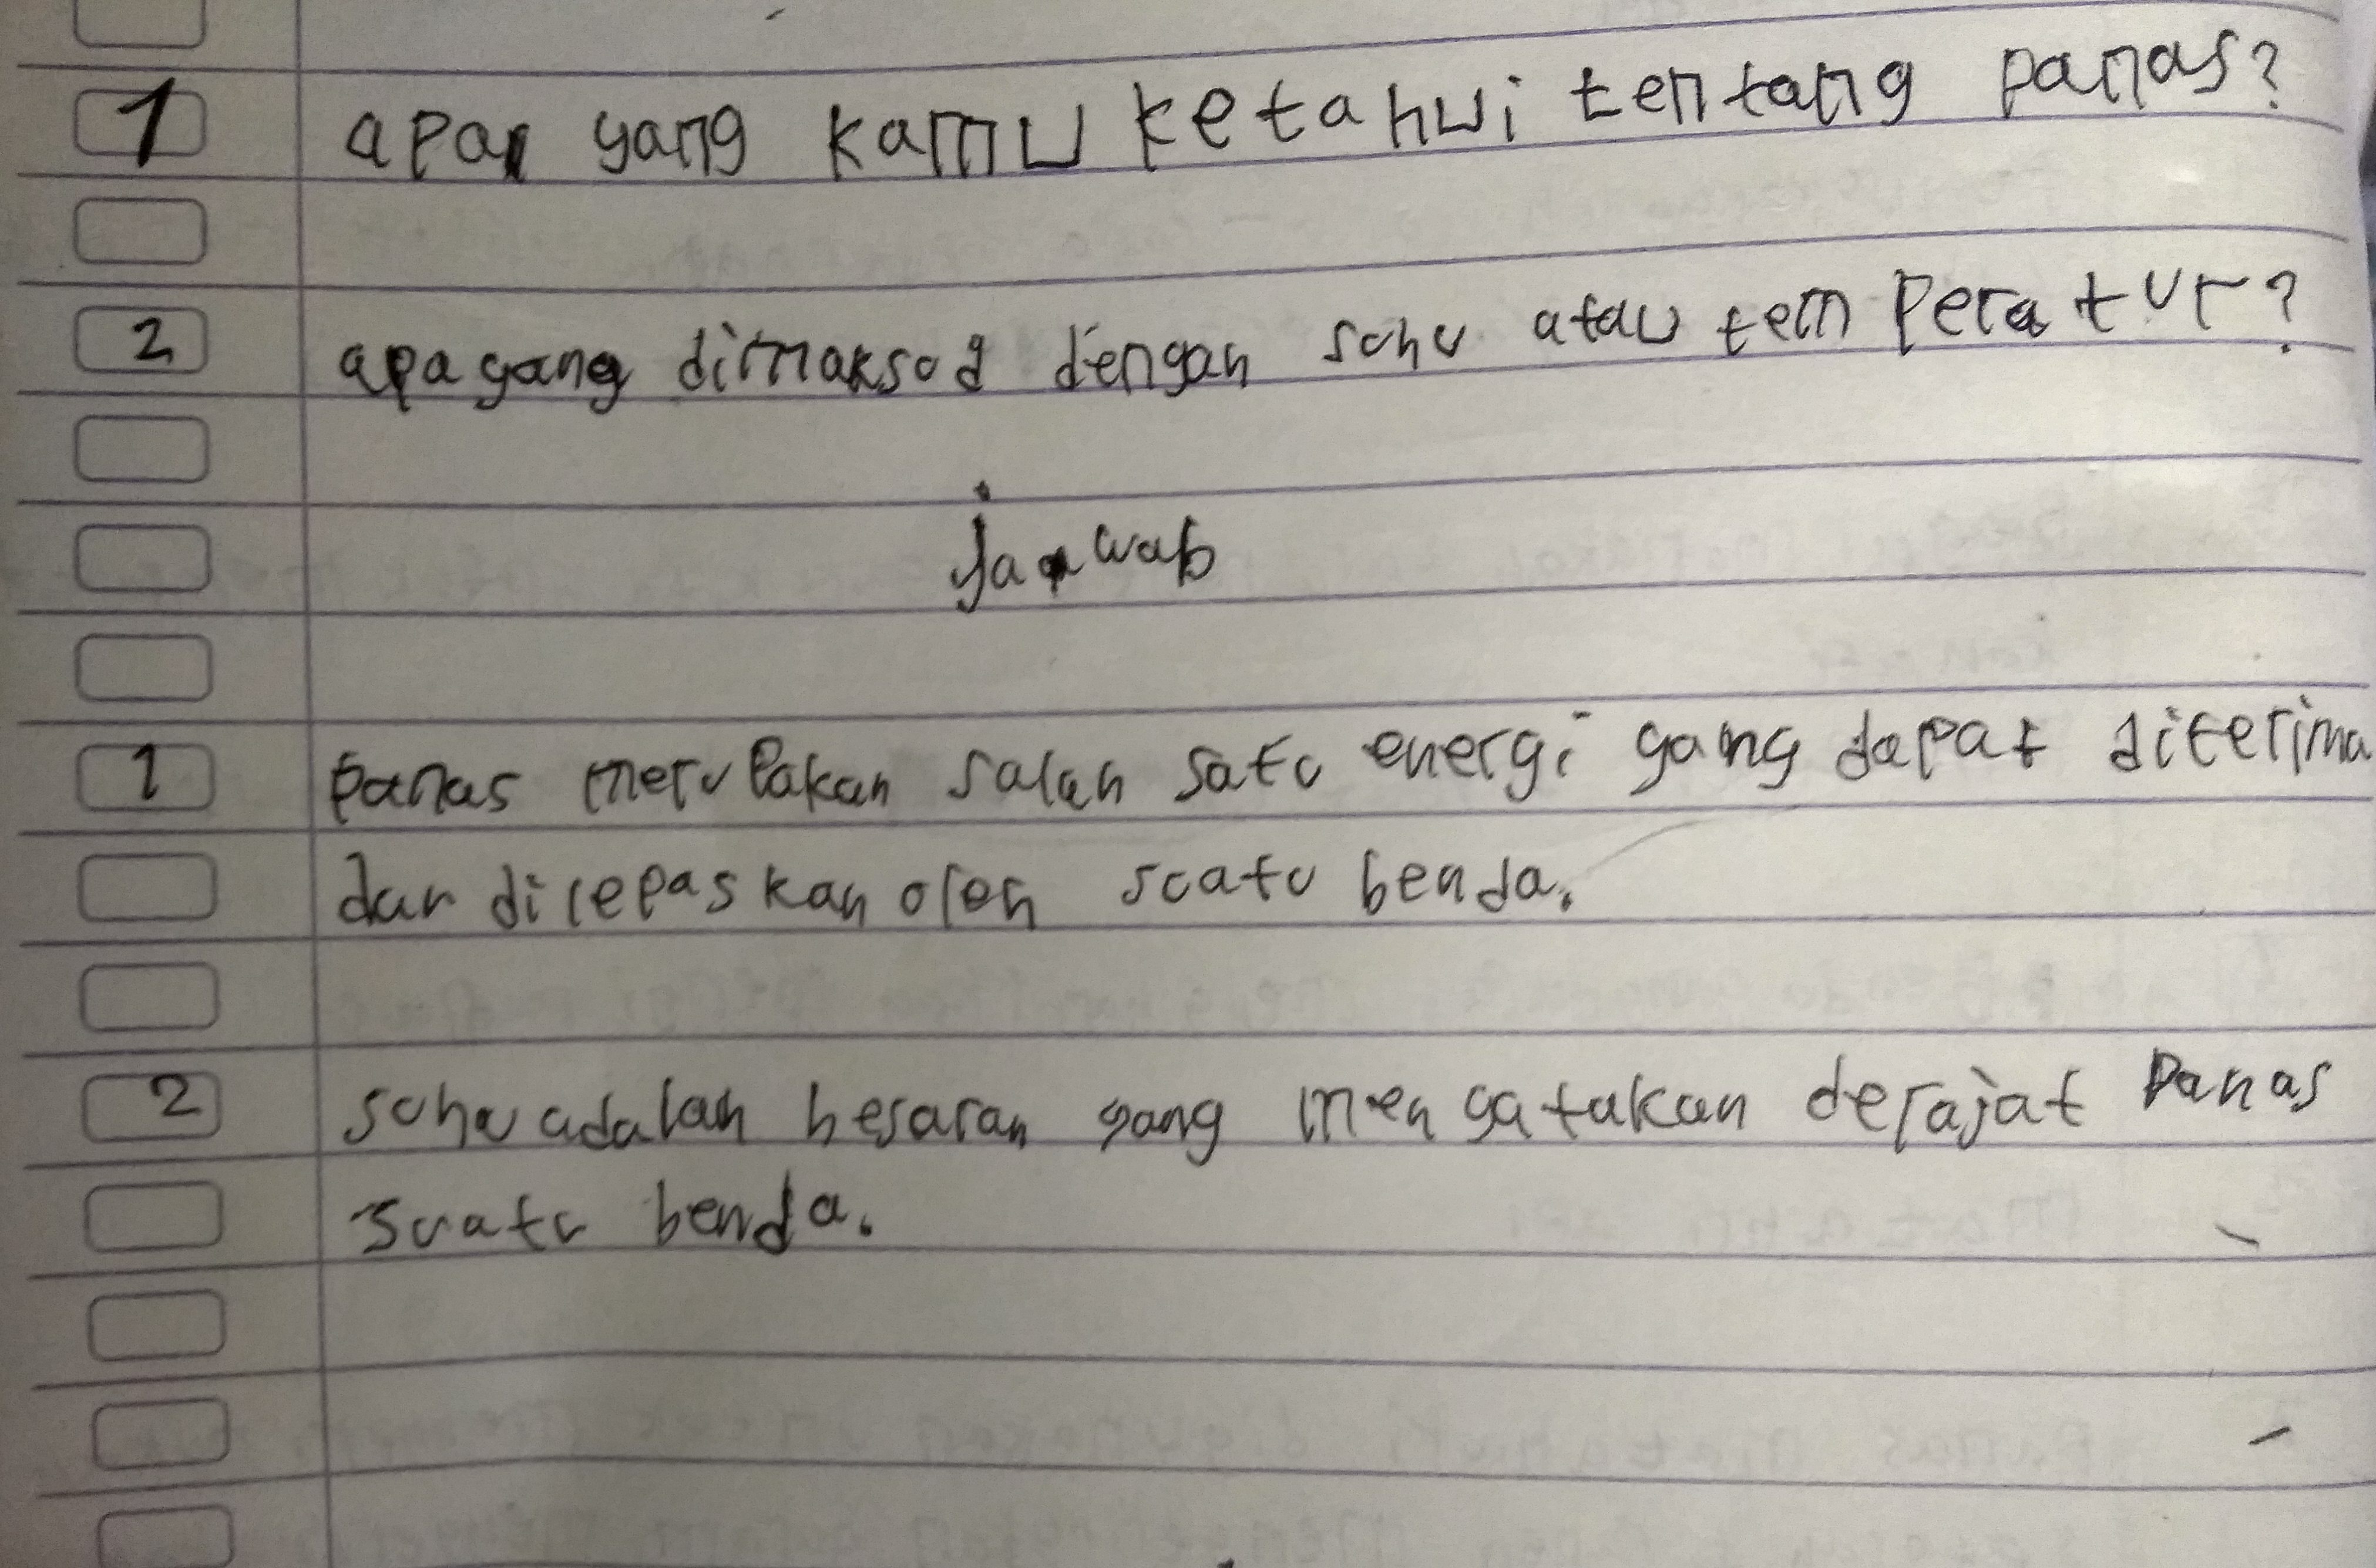 1 apa yang kamu ketahui tentang panas?
2 apa yang dimaksud dengan suhu atau temperatur?
jawab
1 panas merupakan salah satu energi yang dapat diterima
dan dilepaskan oleh suatu benda.
2 suhu adalah besaran yang mengatakan derajat panas
suatu benda.